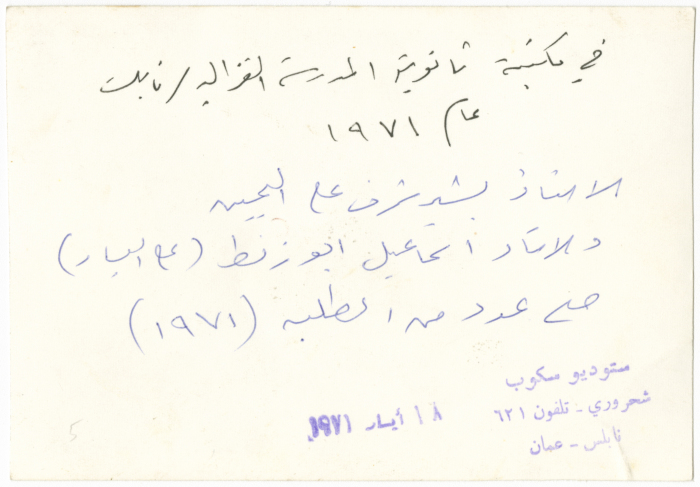 في مكتبة ثانوية المدرسة الغزالية / نابلس
عام ١٩٧١
الاستاذ بشير شرف على اليمين
والاستاذ اسماعيل ابو زنط (على اليسار)
مع عدد من الطلبه (١٩٧١)
ستوديو سكوب
شحروري - تلفون ٦٢١
نابلس - عمان
١٨ أيار ١٩٧١